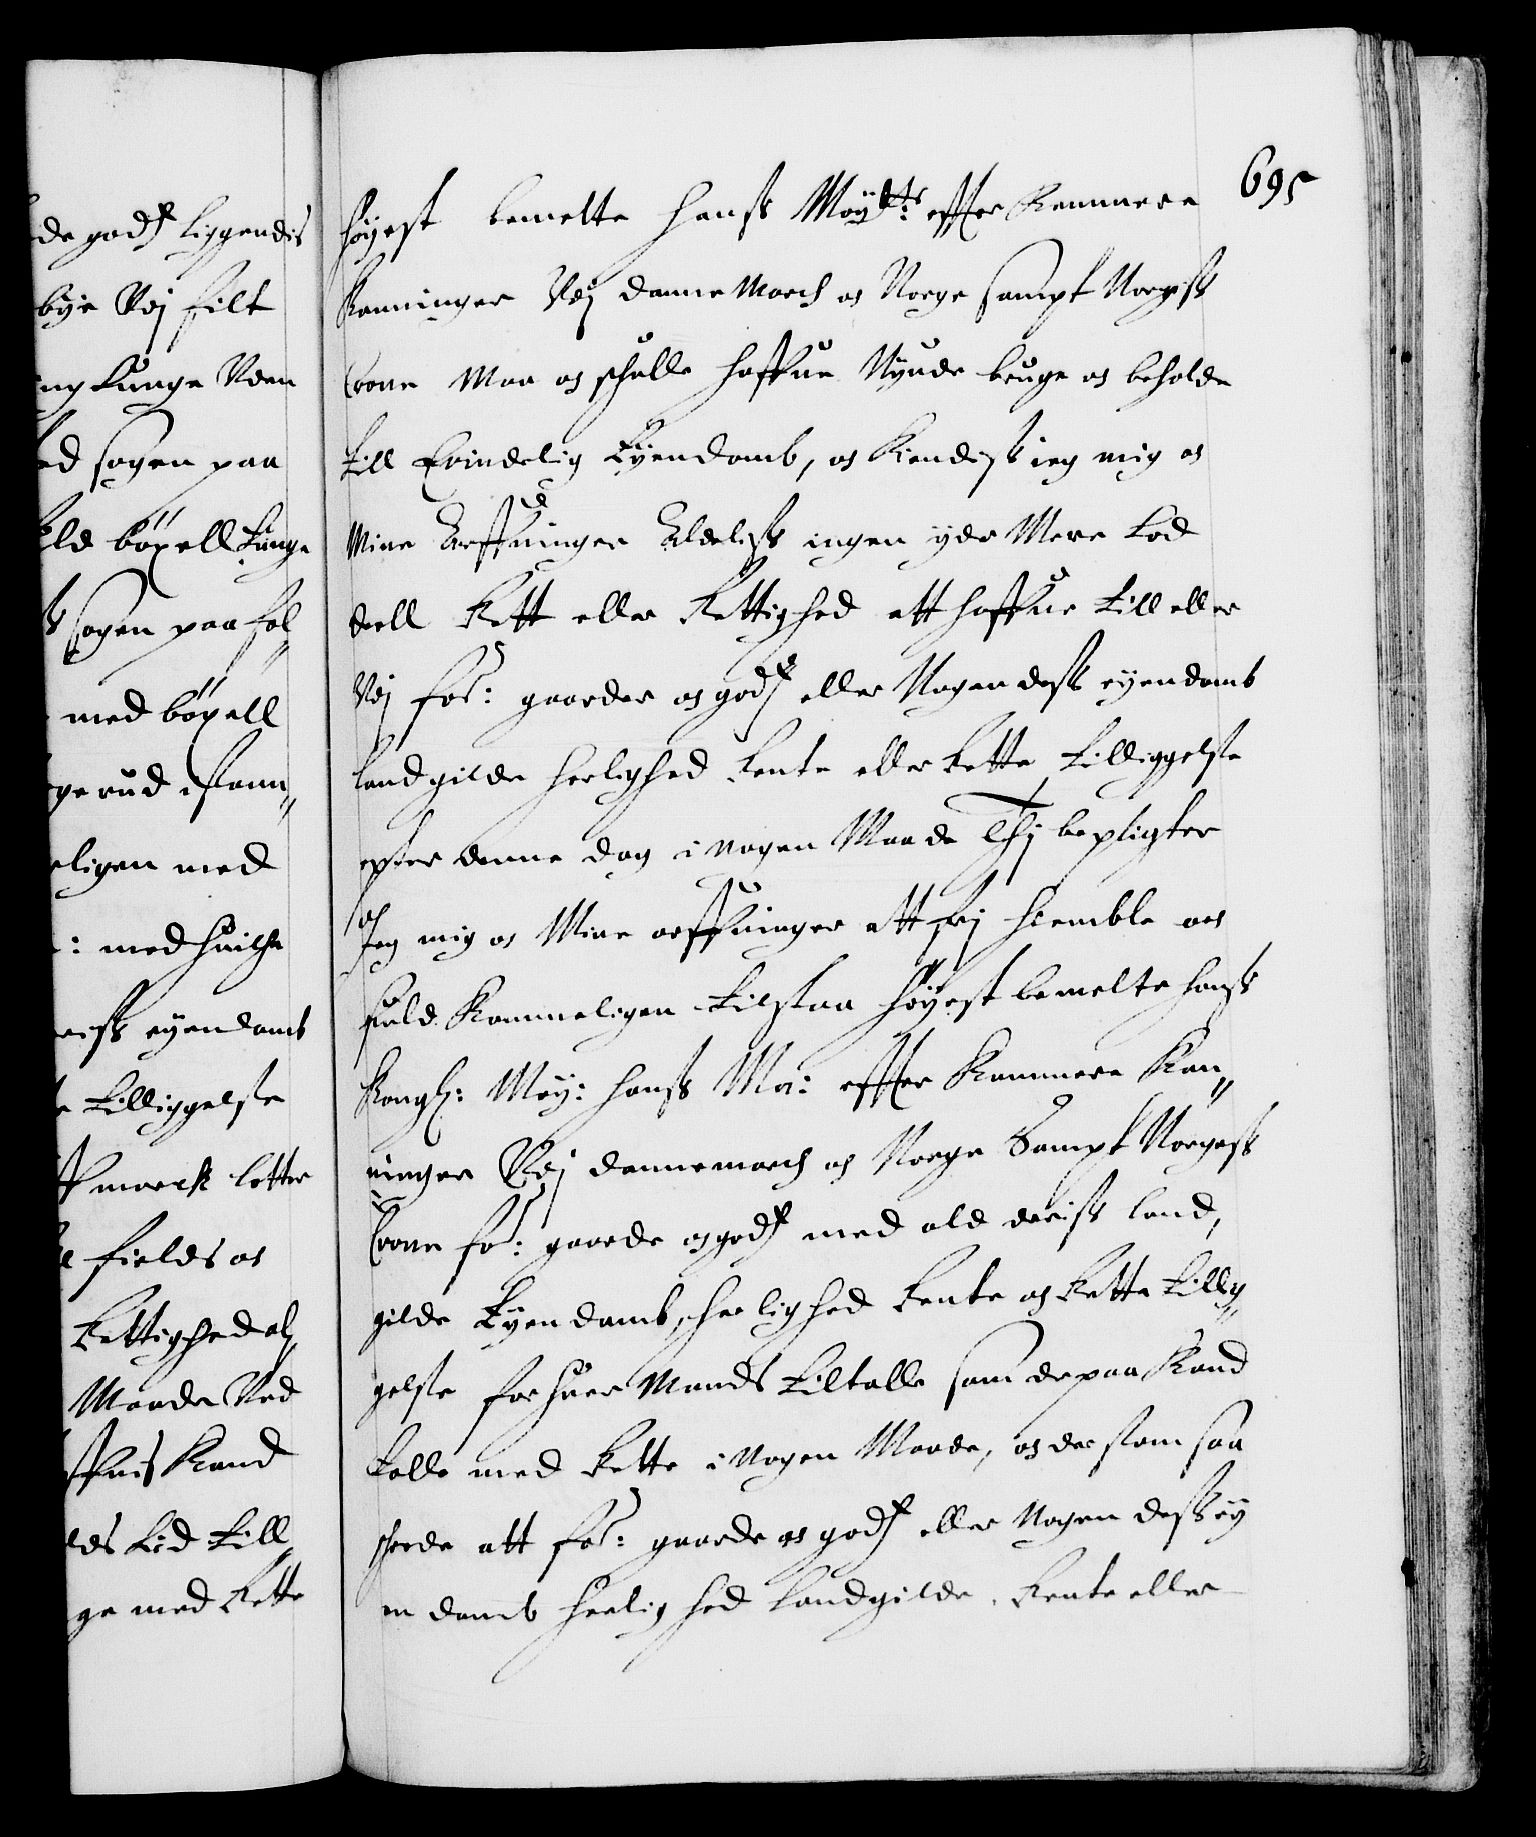 de godz liggendis
bÿe Vdj filt
ng Lunge Vden
ed sogen paa
ld böxell Lunge
s sogen paa fol„
med böxell
ge rud
eligen med
: med huilche
eiss eyendomb
e Tilliggelsse
march lotter
fields os
Rettighed al„
Maade Ved
Kand
ds Lid Till„
ge med Rette
695
höyest bemelte hanss Maÿtts: effter Kommere
Konninger Vdj dannemarch os Norge sampt Norgiss
Crone Maa os schulle haffue Nyude bruge os beholde
till Evindelig Eÿendomb, os Kiendiss ieg mig os
Mine Arffuinger Aldeliss ingen yder Mere Lod
deell Rett eller Rettighed att haffue till eller
Vdj for: gaarder os godz eller Nogen dess eyendomb
landgilde herlighed Rente eller Rette Tilliggelse
epter denne dag i nogen Maade Thj bepligter
Jeg mig os Mine arffuinger att frj hiemble oc
fuld Kommeligen tilstaa höÿest bemelte hanss
Kongl: Maÿ: hanss Ma: effter Kommere Kon„
ninger Vdj dannemarch os Norge Sampt Norgess
Crone for: gaarde os godz med ald deriss land,
gilde Eÿendomb, herlighed Rente os Rette Tillig„
gelsse for huer Mands tiltalle som derpaa Kand
talle med Rette i nogen Maade, os der som saa
scheede att for: gaarde os godz eller Nogen dess eÿ
en domb herlig hed Landgilde, Rente eller